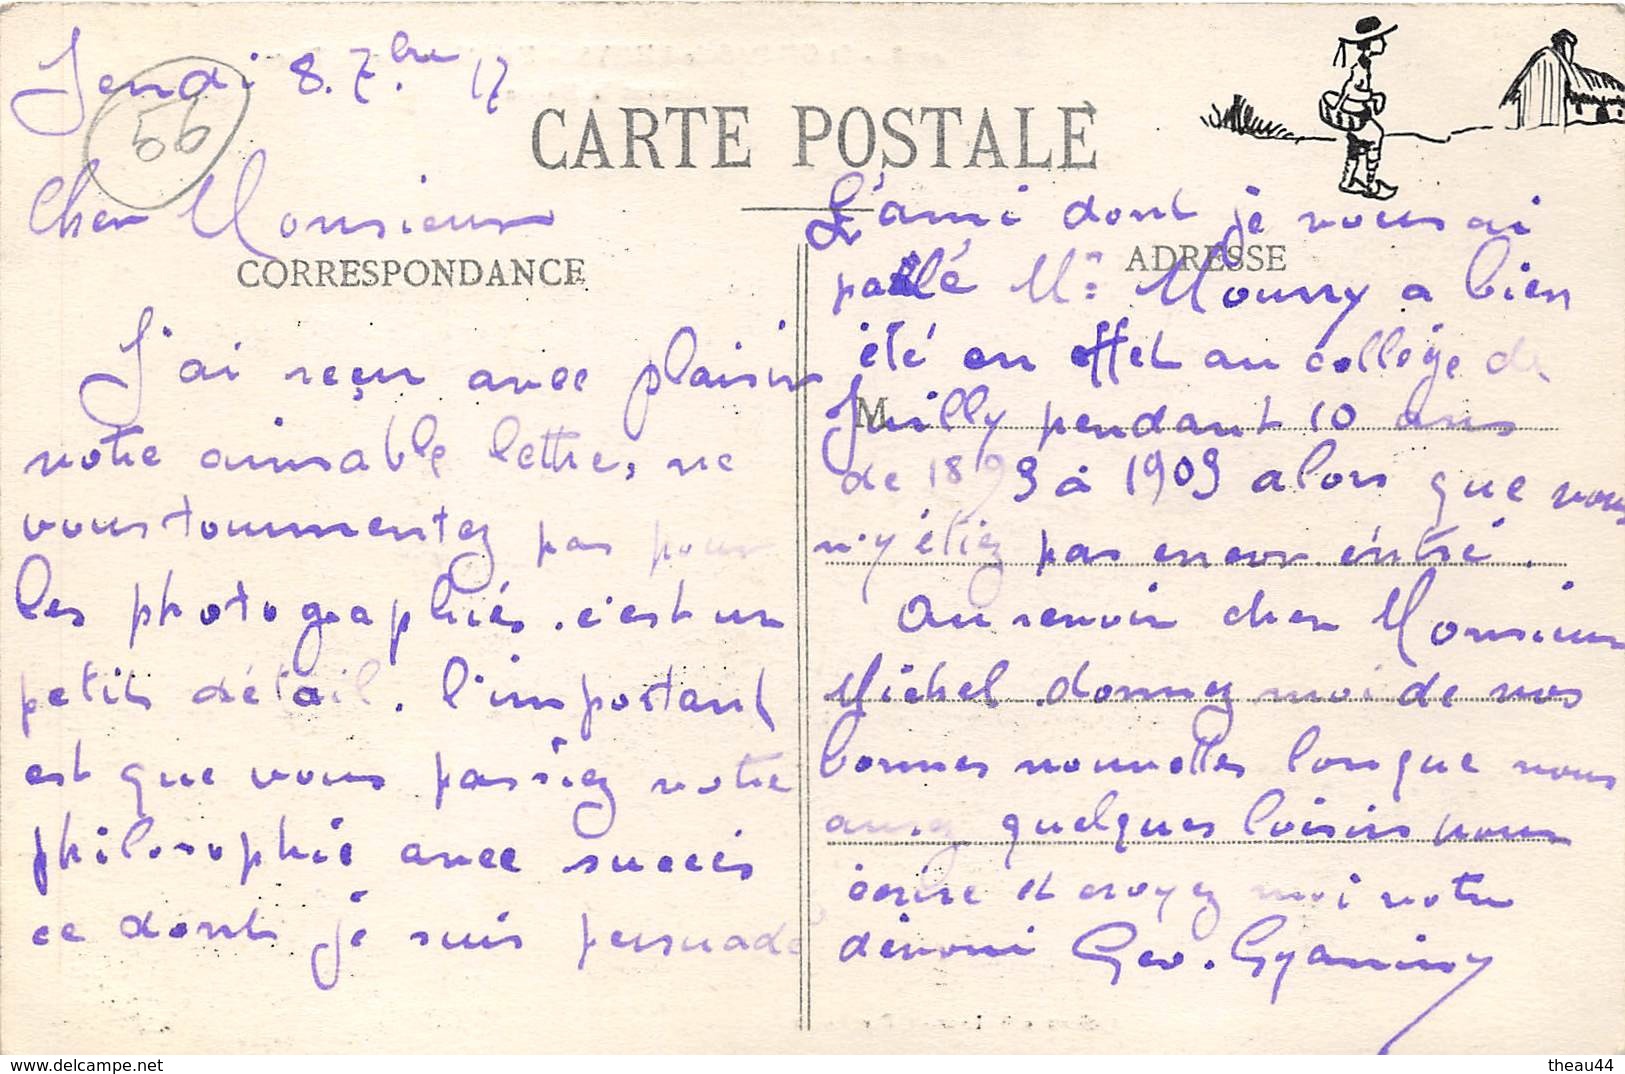 Jeudi 8. 7bre 17
56
CARTE POSTALE
Cher Monsieur
CORRESPONDANCE
J'ai reçu avec plaisir
votre aimable lettre, ne
vous tourmentez pas pour
les photographiés. c'est un
petit détail. l'important
est que vous passiez votre
philosophie avec succés
ce dont je suis persuadé
L'ami dont je vous ai
ADRESSE
parlé Mr Mourry a bien
été en effet au collège de
M
Juilly pendant 10 ans
de 1899 à 1909 alors que vous
n'y étiez pas encor entré.
Au revoir cher Monsieur
Michel donnez moi de vos
bonnes nouvelles lorsque vous
aurez quelques loisirs pour
écrire et croyez moi votre
dévoué Geo.
theau44